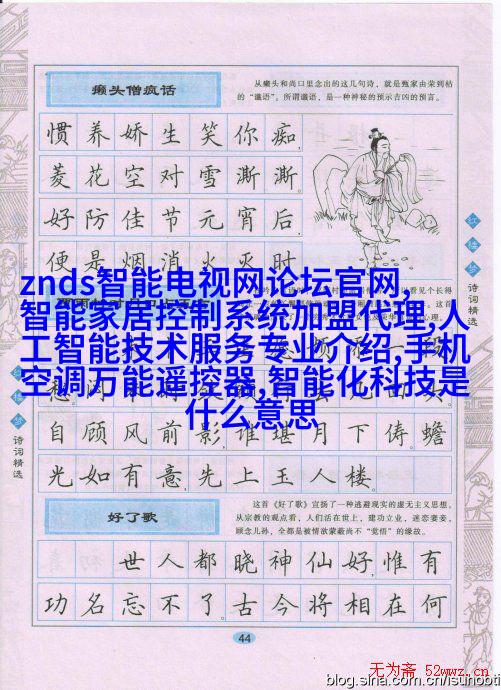 癞头僧疯话
从癞头和尚口里念出的这几句诗，就是甄家由荣到枯
的“谶语”。所谓谶语，是一种神秘的预示吉凶的预言。
惯养娇生笑你痴，
菱花空对雪澌澌。
好防佳节元宵后，
便是烟消火灭时
红楼梦
诗词精选
znds智能电视网论坛官网,
智能家居控制系统加盟代理,人
工智能技术服务专业介绍,手机
空调万能遥控器,智能化科技是
什么意思
诗词精选
自顾风前影，谁堪月下俦蟾
光如有意，先上玉人楼。
好了歌
这首《好了歌》宣扬了一种逃避现实的虚无主义思想。
从宗教的观点看，人们活在世上，建功立业，迷恋妻妾，
顾念儿孙，全都是被情欲蒙蔽尚不“觉悟”的缘故。
世人都晓神仙好，惟有
功名忘不了古今将相在何
44
无为斋 52wwz.cn
blog.sina.com.cn/isunobti